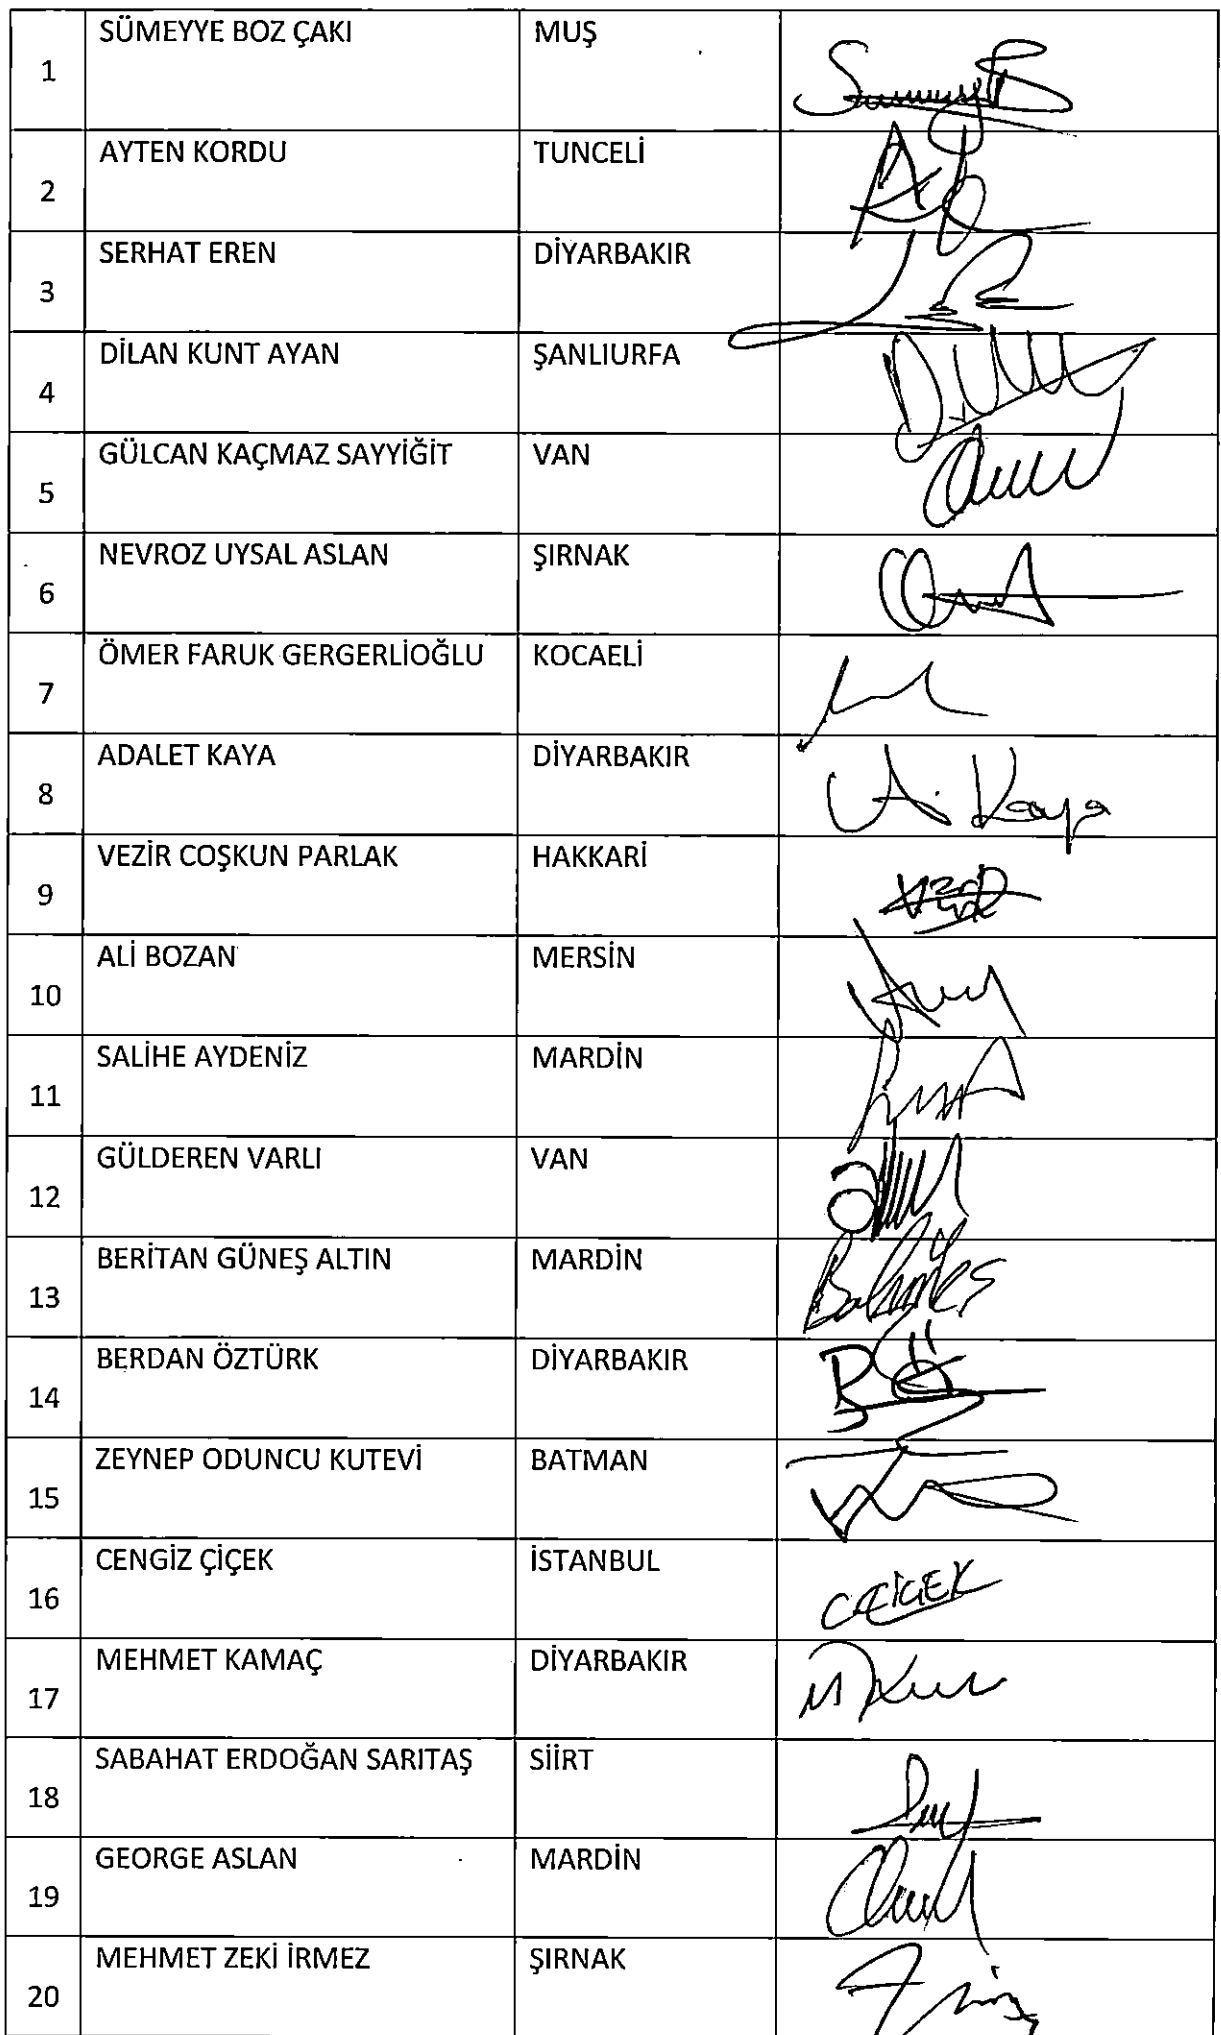 1 SÜMEYYE BOZ ÇAKI MUŞ
2 AYTEN KORDU TUNCELİ
3 SERHAT EREN DİYARBAKIR
4 DİLAN KUNT AYAN ŞANLIURFA
5 GÜLCAN KAÇMAZ SAYYİĞİT VAN
6 NEVROZ UYSAL ASLAN ŞIRNAK
7 ÖMER FARUK GERGERLİOĞLU KOCAELİ
8 ADALET KAYA DİYARBAKIR A. Kaya
9 VEZİR COŞKUN PARLAK HAKKARİ
10 ALİ BOZAN MERSİN
11 SALİHE AYDENİZ MARDİN
12 GÜLDEREN VARLI VAN
13 BERİTAN GÜNEŞ ALTIN MARDİN
14 BERDAN ÖZTÜRK DİYARBAKIR BÖ
15 ZEYNEP ODUNCU KUTEVİ BATMAN
16 CENGİZ ÇİÇEK İSTANBUL
17 MEHMET KAMAÇ DİYARBAKIR
18 SABAHAT ERDOĞAN SARITAŞ SİİRT
19 GEORGE ASLAN MARDİN
20 MEHMET ZEKİ İRMEZ ŞIRNAK